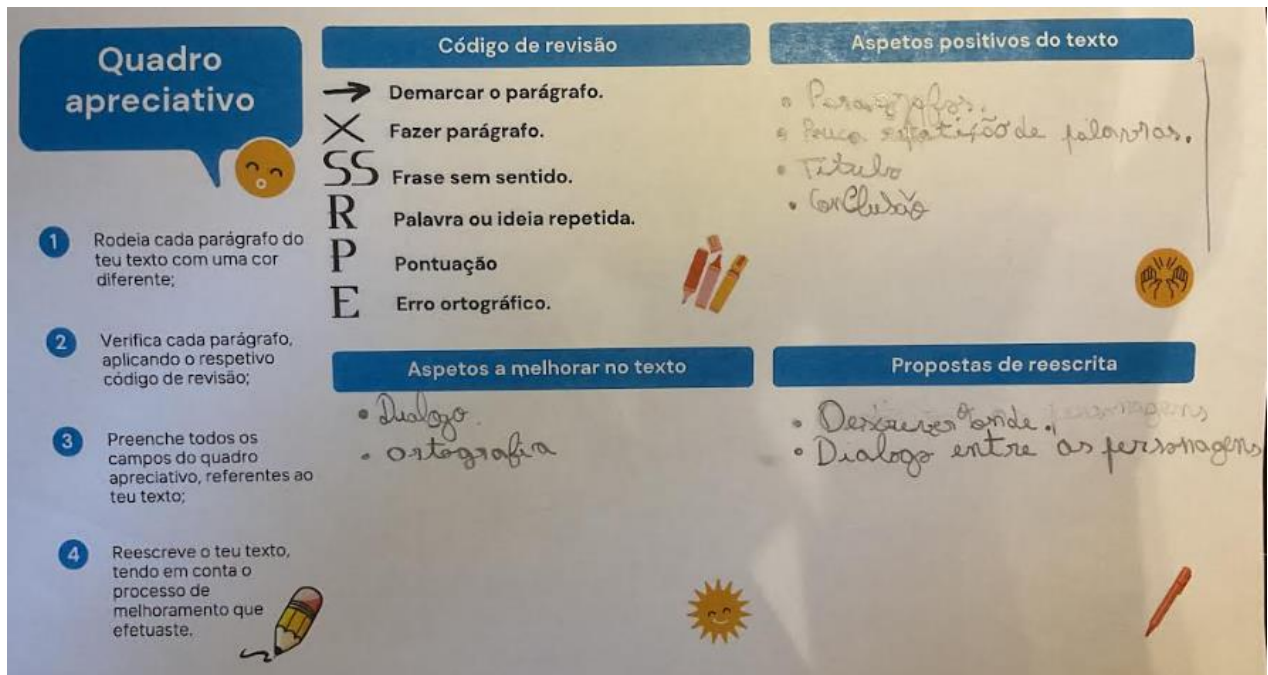 Quadro
apreciativo
1 Rodeia cada parágrafo do
teu texto com uma cor
diferente;
2 Verifica cada parágrafo,
aplicando o respetivo
código de revisão;
3 Preenche todos os
campos do quadro
apreciativo, referentes ao
teu texto;
4 Reescreve o teu texto,
tendo em conta o
processo de
melhoramento que
efetuaste.
Código de revisão
→ Demarcar o parágrafo.
X Fazer parágrafo.
SS Frase sem sentido.
R Palavra ou ideia repetida.
P Pontuação
E Erro ortográfico.
Aspetos positivos do texto
• Paragrafos.
• Pouca repetição de palavras.
• Titulo
• Conclusão
Aspetos a melhorar no texto
• Dialogo.
• ortografia
Propostas de reescrita
• Descrever onde.
• Dialogo entre as personagens